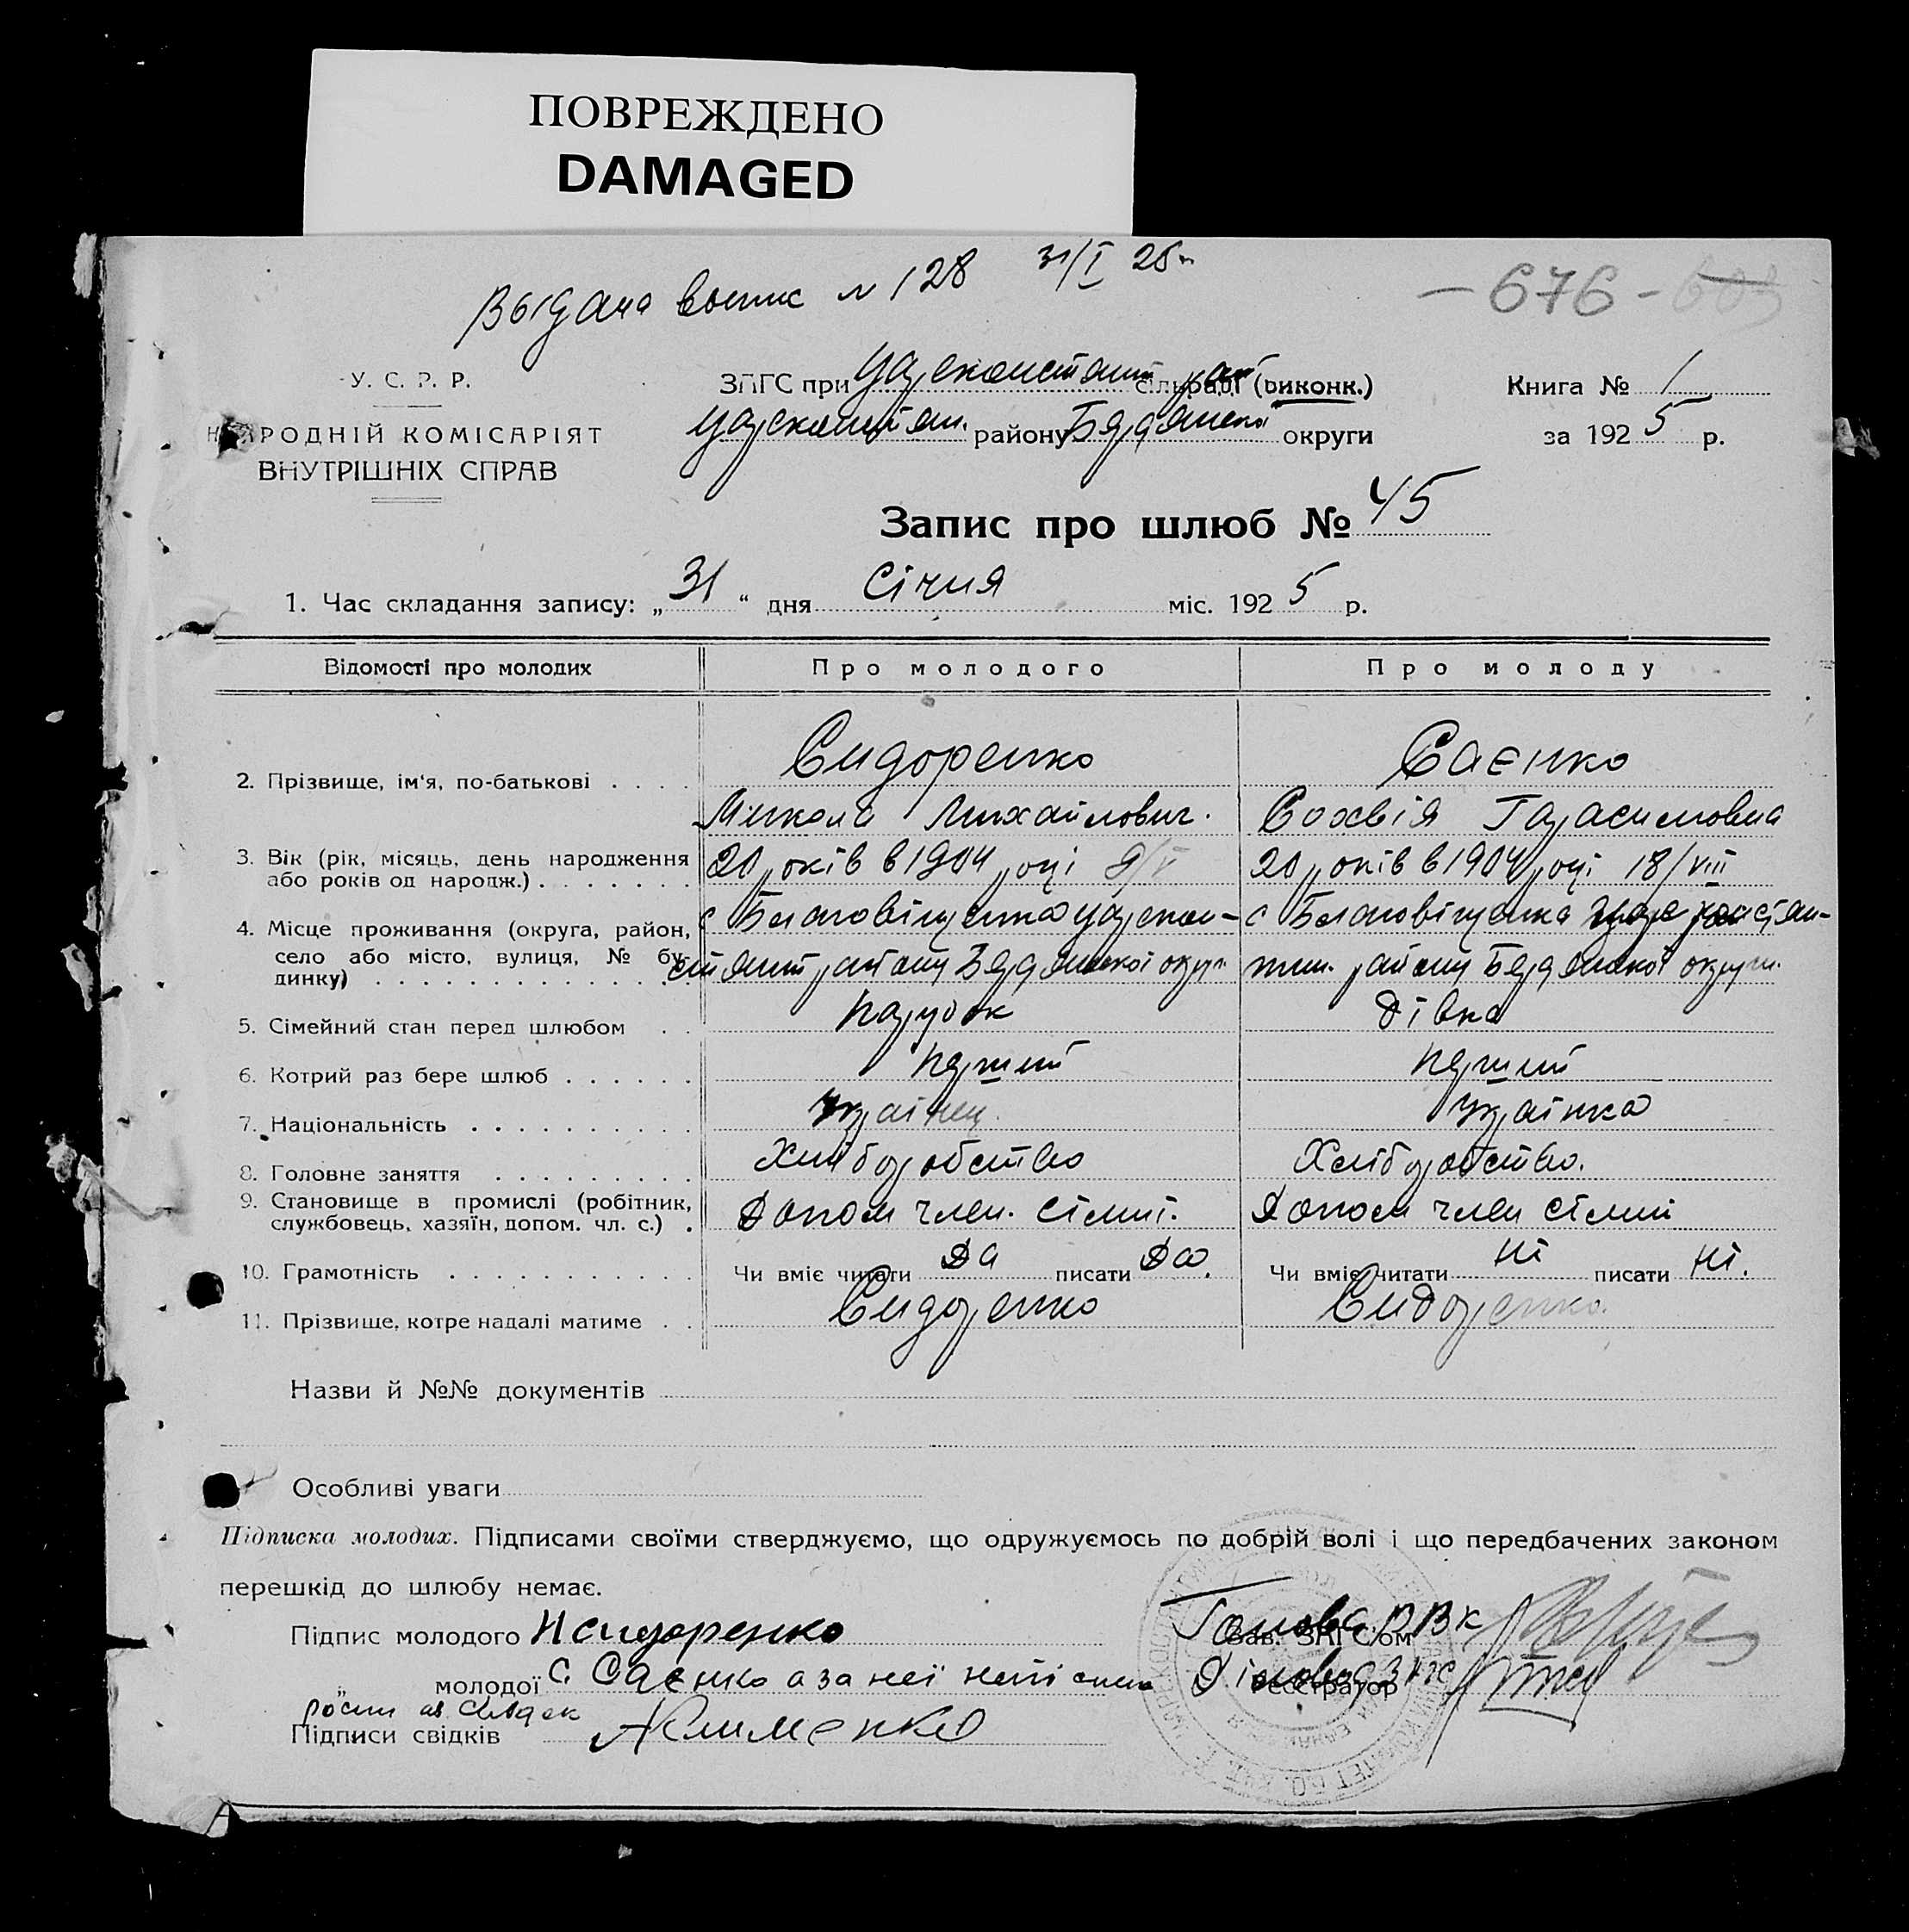 ПОВРЕЖДЕНО
DAMAGED
Выдана выпис № 128 31/I 25 г.
– 676 – 603
У. С. Р. Р.
НАРОДНІЙ КОМІСАРІЯТ
ВНУТРІШНІХ СПРАВ
ЗАГС при Царсконстант сільраді (виконк.)
Царсконстан. району Бердянської округи
Книга № 1
за 1925 р.
Запис про шлюб № 45
1. Час складання запису: „31“ дня Січня міс. 1925 р.
Відомості про молодих Про молодого Про молоду
2. Прізвище, ім'я, по-батькові . . . . Сидоренко Саєнко
Микола Михайлович. Сохвія Гарасимовна
3. Вік (рік, місяць, день народження 20 років в 1904 році 9/V 20 років в 1904 році 18/VIII
або років од народж.) . . . . . . .
4. Місце проживання (округа, район, с Благовіщенка Царскон- с Благовіщенка Царе констан-
село або місто, вулиця, № бу- стянт району Бердянської округ. тин. району Бердянської округи.
динку) . . . . . . . . . . . . . .
5. Сімейний стан перед шлюбом . . парубок дівка
6. Котрий раз бере шлюб . . . . . . перший перший
7. Національність . . . . . . . . . . українец. українка
8. Головне заняття . . . . . . . . . Хліборобство Хліборобство.
9. Становище в промислі (робітник, Допом член. сімні. Допом член сімни
службовець, хазяїн, допом. чл. с.) .
10. Грамотність . . . . . . . . . . . Чи вміє читати Да писати Да. Чи вміє читати Ні писати Ні.
11. Прізвище, котре надалі матиме . . Сидоренко Сидоренко.
Назви й №№ документів
Особливі уваги
Підписка молодих. Підписами своїми стверджуємо, що одружуємось по добрій волі і що передбачених законом
перешкід до шлюбу немає.
Підпис молодого Н Сидоренко Голова РВК Зав. ЗАГС'ом
„ молодої С Саєнко а за неї Діловод ЗАГС Реєстратор
Підписи свідків Клименко